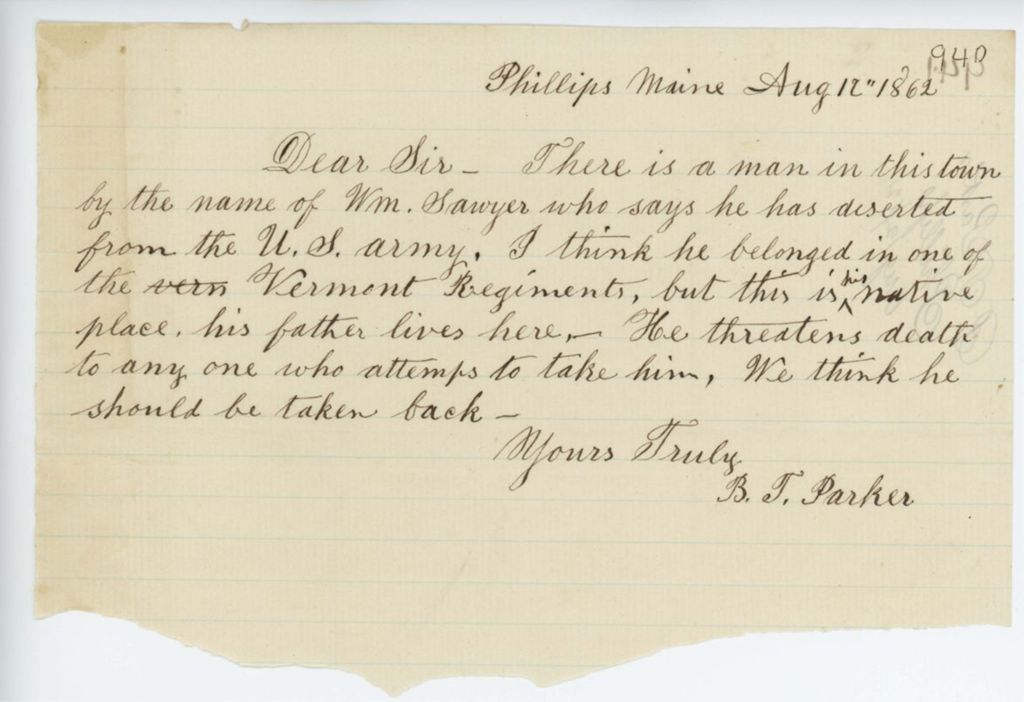 940
Phillips Maine Aug 12" 1862
Dear Sir - There is a man in this town
by the name of Wm. Sawyer who says he has diserted
from the U. S. army. I think he belonged in one of
the vern Vermont Regiments, but this is his native
place. his father lives here. - He threatens death
to any one who attemps to take him, We think he
should be taken back -
Yours Truly
B. T. Parker